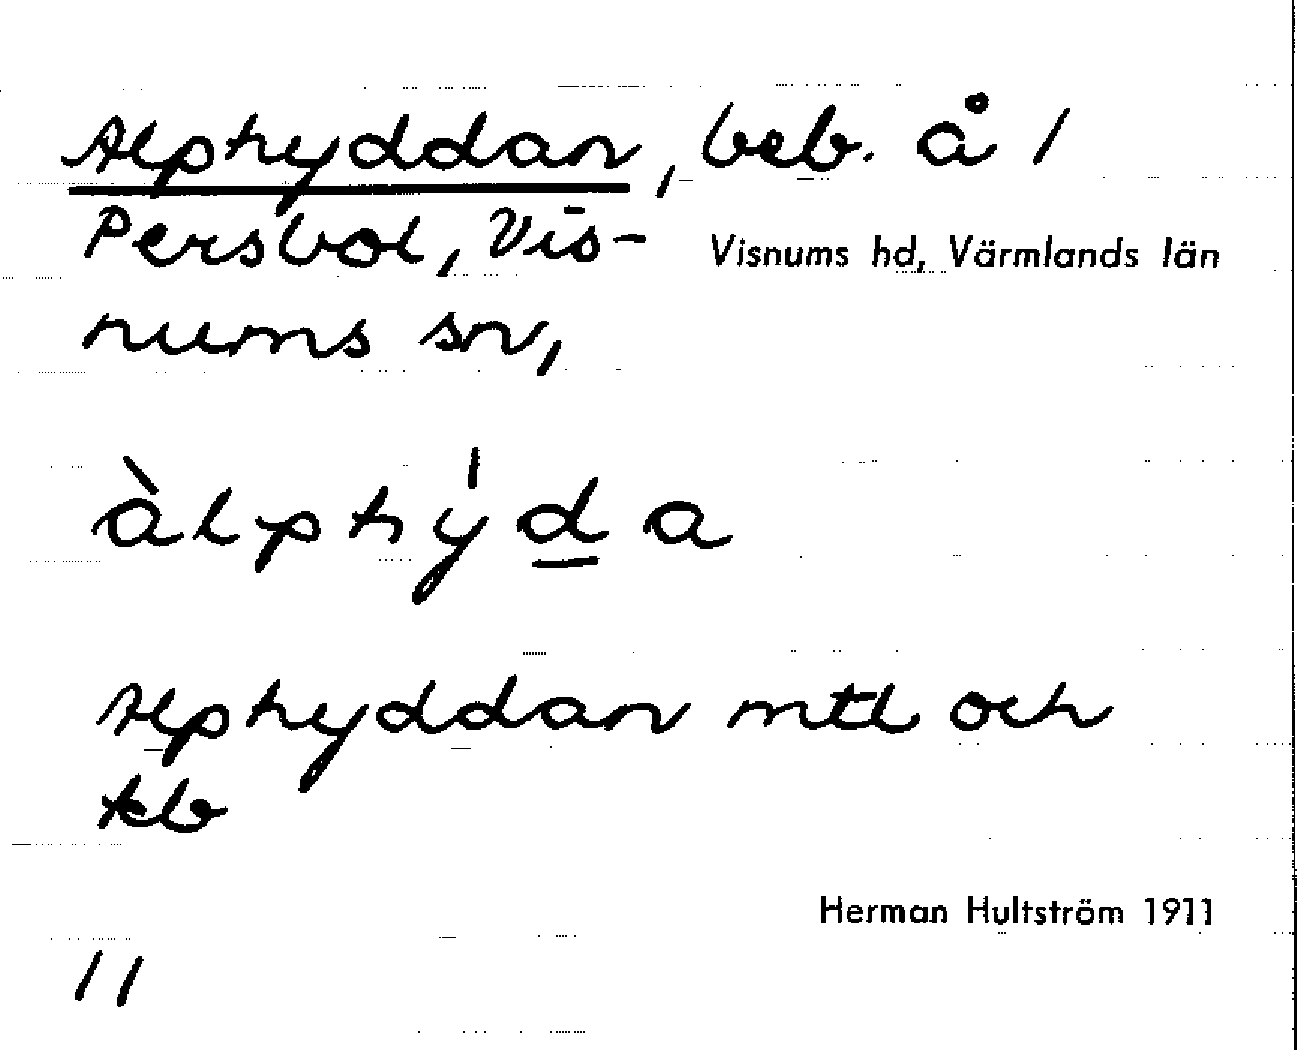 Alphyddan, beb. å 1
Persbol, Vis-
Visnums hd, Värmlands län
nums sn,
àlphy̍d̲a
Alphyddan mtl och
kb
Herman Hultström 1911
11